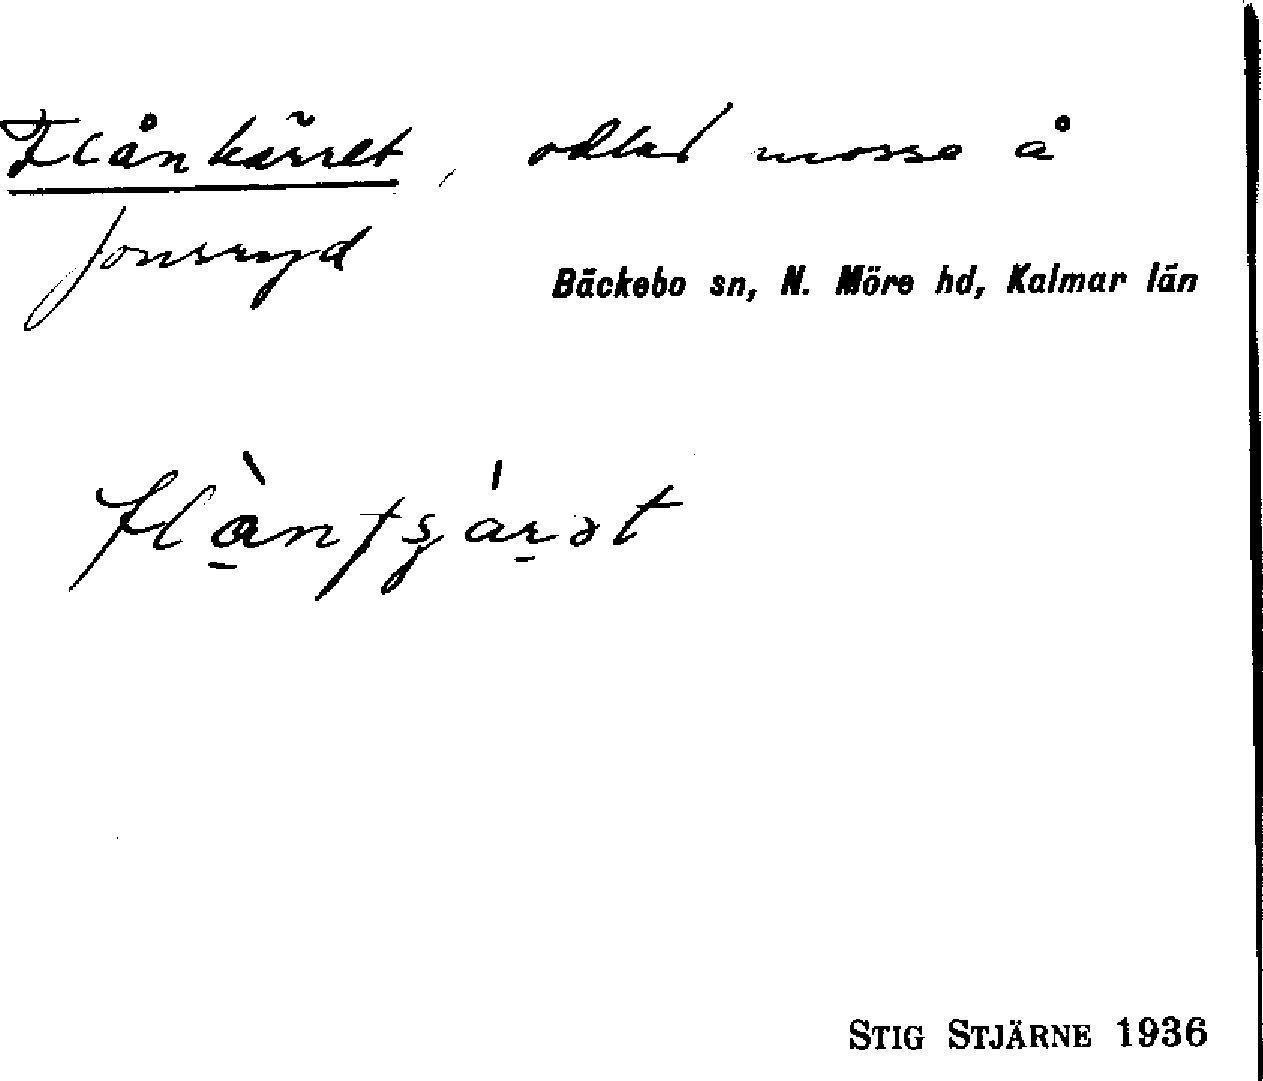 Flånkärret, odlad mosse å
Jonsryd
Bäckebo sn, N. Möre hd, Kalmar län
STIG STJÄRNE 1936